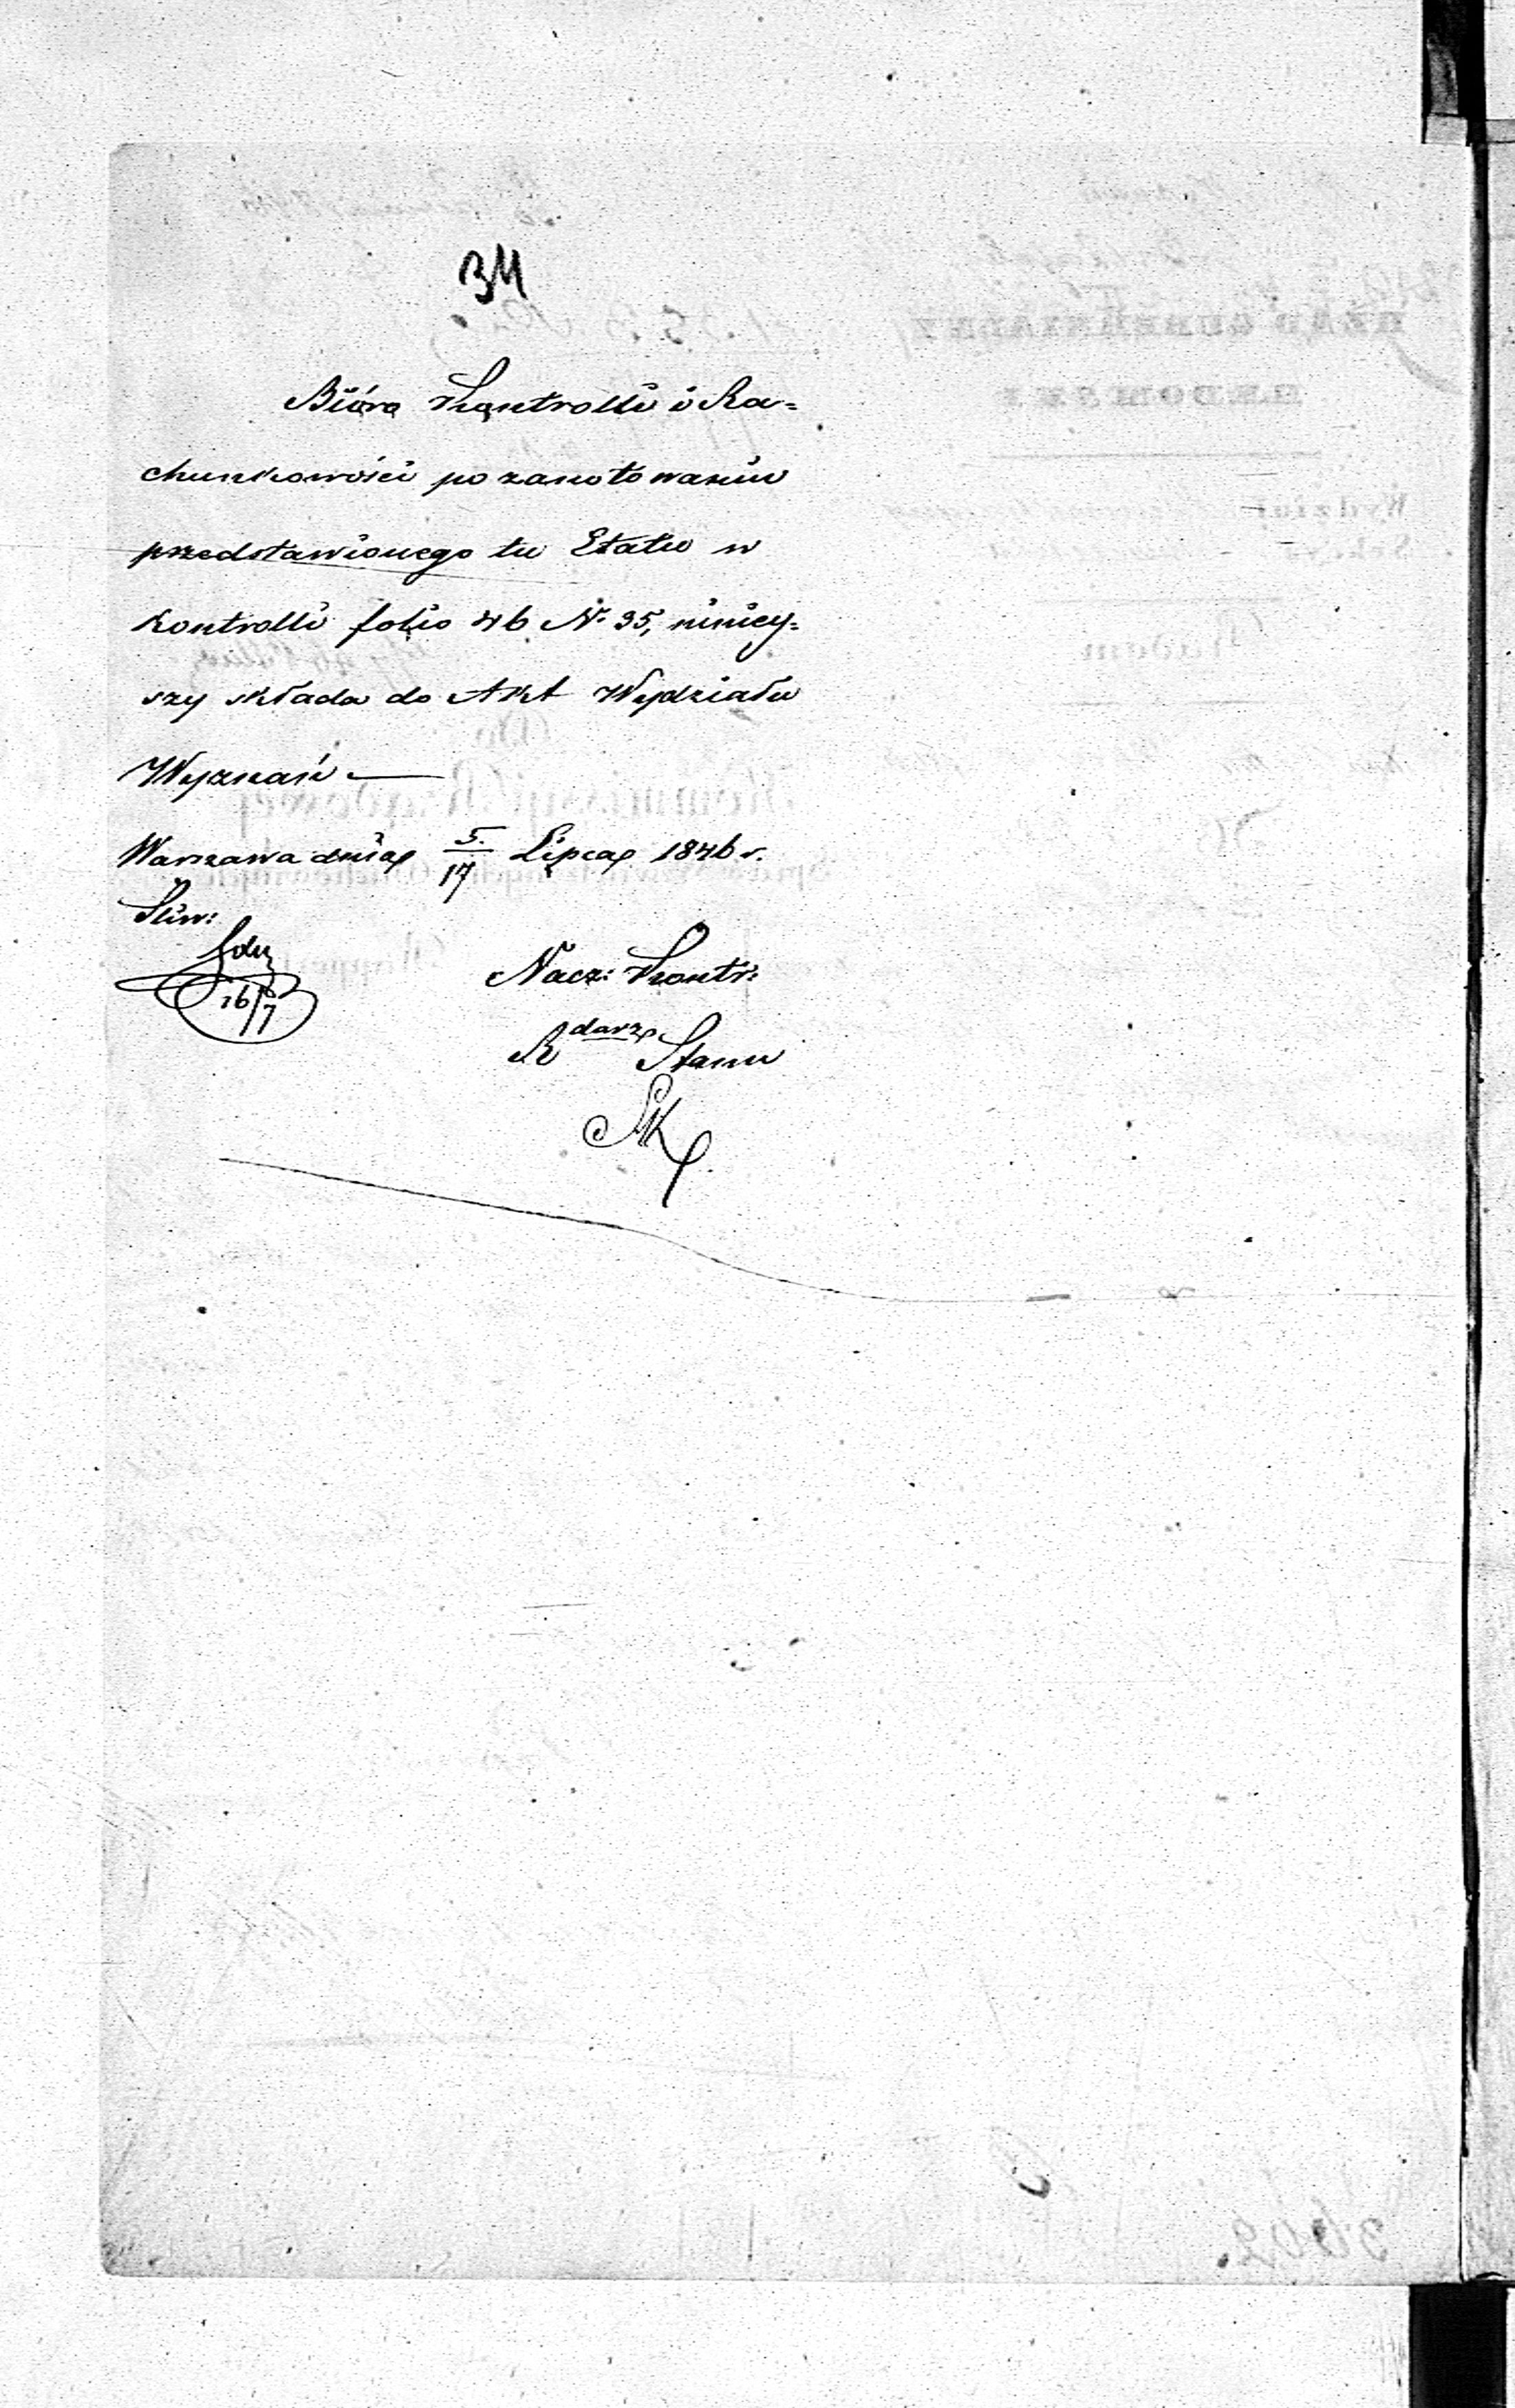 34
Bióro Kontrolli i Ra=
chunkowości po zanotowaniu
przedstawionego tu Etatu w
Kontrolli folio 46 N. 35, niniey=
szy składa do Akt Wydziału
Wyznań —
Warszawa dnia 5./17 Lipca 1846 r.
16/7
Nacz: Kontr:
R darz Stanu
SK